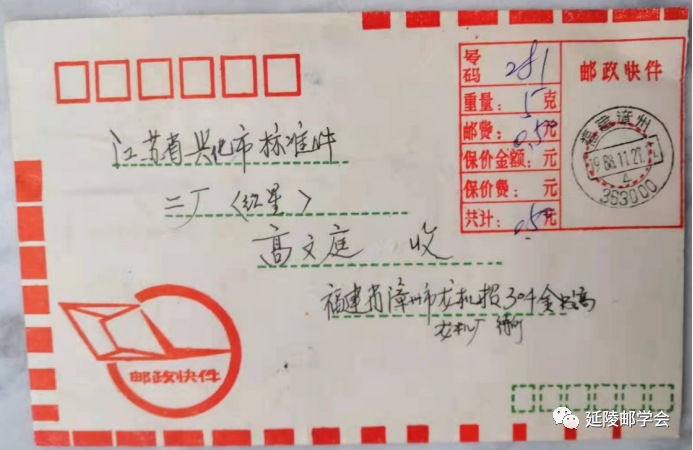 号码 281
邮政快件
重量: 5克
邮费: 0.50元
保价金额: 元
保价费: 元
共计: 0.5元
福建漳州
1988.11.27.
4
363000
江苏省兴化市标准件
二厂〈红星〉
高文庭 收
福建省漳州市龙机招304
邮政快件
延陵邮学会